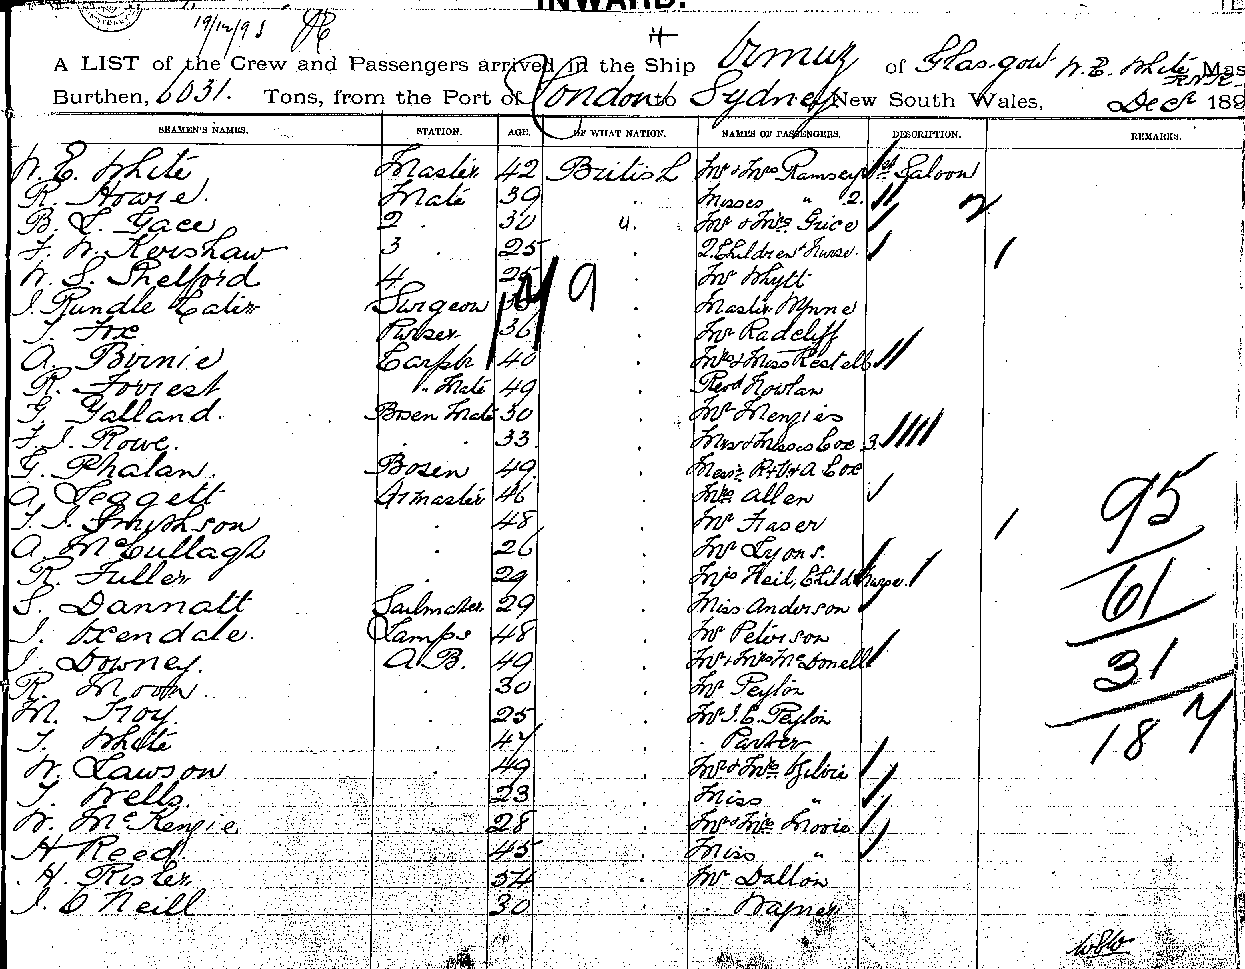 INWARD.
19/12/98
A LIST of the Crew and Passengers arrived in the Ship Ormuz of Glasgow W. E. White Mas
Burthen, 6031. Tons, from the Port of London to Sydney New South Wales, Decr 189
SEAMEN'S NAMES. STATION. AGE. OF WHAT NATION. NAMES OF PASSENGERS. DESCRIPTION. REMARKS.
W. E. White Master 42 British Mr & Mrs Ramsey 1st Saloon
R. Howie. Mate 39 Misses " 2. 2
B. L. Gace 2 30 " Mr & Mrs Grice
F. W. Kershaw 3 25 2 Children & Nurse
W. S. Shelford 4 25 Mr Whytt
J. Rundle Surgeon 9 Master Wynne
Purser 36 Mr Radcliff
A. Birnie Carptr 40 Mrs & Miss Restell
R. Forrest " Mate 49 Revd Nowlan
G. Galland. Bosen Mate 30 Mr Menzies
F. J. Rowe. 33 Mrs & Misses Cox 3
G. Phalan. Bosen 49 Messrs & A Cox
A. Leggett Qrmaster 46 Mrs Allen 95
48 Mr Fraser
A. McCullagh 26 Mr Lyons.
R. Fuller 29 Mrs Neil, Child & Nurse. 61
S. Dannatt Sailmaker 29 Miss Anderson
J. Oxendale. Lamps 48 Mr Peterson
J. Downey. A.B. 49 Mr & Mrs McDonell 31
R. Moon. 30 Mr Peylin
M. Troy. 25 Mr J. C. Peylin
T. White 47 " Parker 187
W. Lawson 49 Mr & Mrs Gilvie
T. Wells. 23 Miss "
W. McKenzie 28 Mr & Mrs Moore
H Reed. 45 Miss "
H. Rister 34 Mr Dalton
J. O'Neill 30 " Wagner